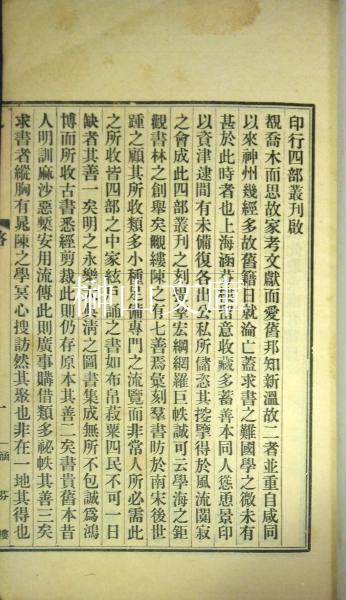 印行四部叢刊啟
覩喬木而思故家考文獻而愛舊邦知新溫故二者並重自咸同
以來神州幾經多故舊籍日就淪亡蓋求書之難國學之微未有
甚於此時者也上海涵芬樓留意收藏多蓄善本同人慫恿景印
以資津逮間有未備復各出公私所儲恣其搜擥得於風流闃寂
之會成此四部叢刊之刻提挈宏綱網羅巨帙誠可云學海之鉅
觀書林之創舉矣觀縷陳之有七善焉彙刻羣書昉於南宋後世
踵之顧其所收類多小種足備專門之流覽而非常人所必需此
之所收皆四部之中家絃戶誦之書如布帛菽粟四民不可一日
缺者其善一矣明之永樂大典清之圖書集成無所不包誠為鴻
博而所收古書悉經剪裁此則仍存原本其善二矣書貴舊本昔
人明訓麻沙惡槧安用流傳此則廣事購借類多祕帙其善三矣
求書者縱胸有晁陳之學冥心搜訪然其聚也非在一地其得也
一
涵芬樓
榊山文庫